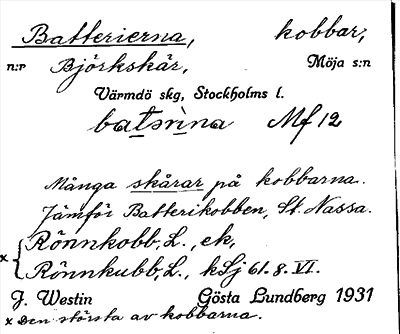 Batterierna, kobbar,
n:r Björkskär, Möja s:n
Värmdö skg, Stockholms l.
batsrina Mf 12
Många skårar på kobbarna.
Jämför Batterikobben, St. Nassa.
x { Rönnkobb, L., ek,
Rönnkubb, L., kSj 61.8.VI.
J. Westin Gösta Lundberg 1931
x Den största av kobbarna.